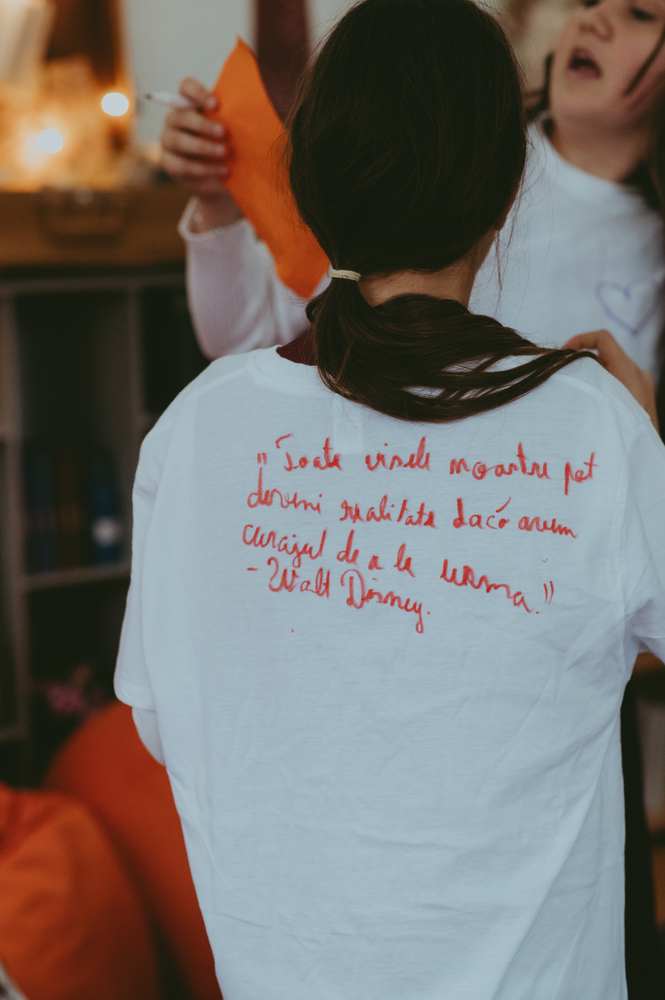 „Toate visele noastre pot
deveni realitate dacă avem
curajul de a le urma."
- Walt Disney.